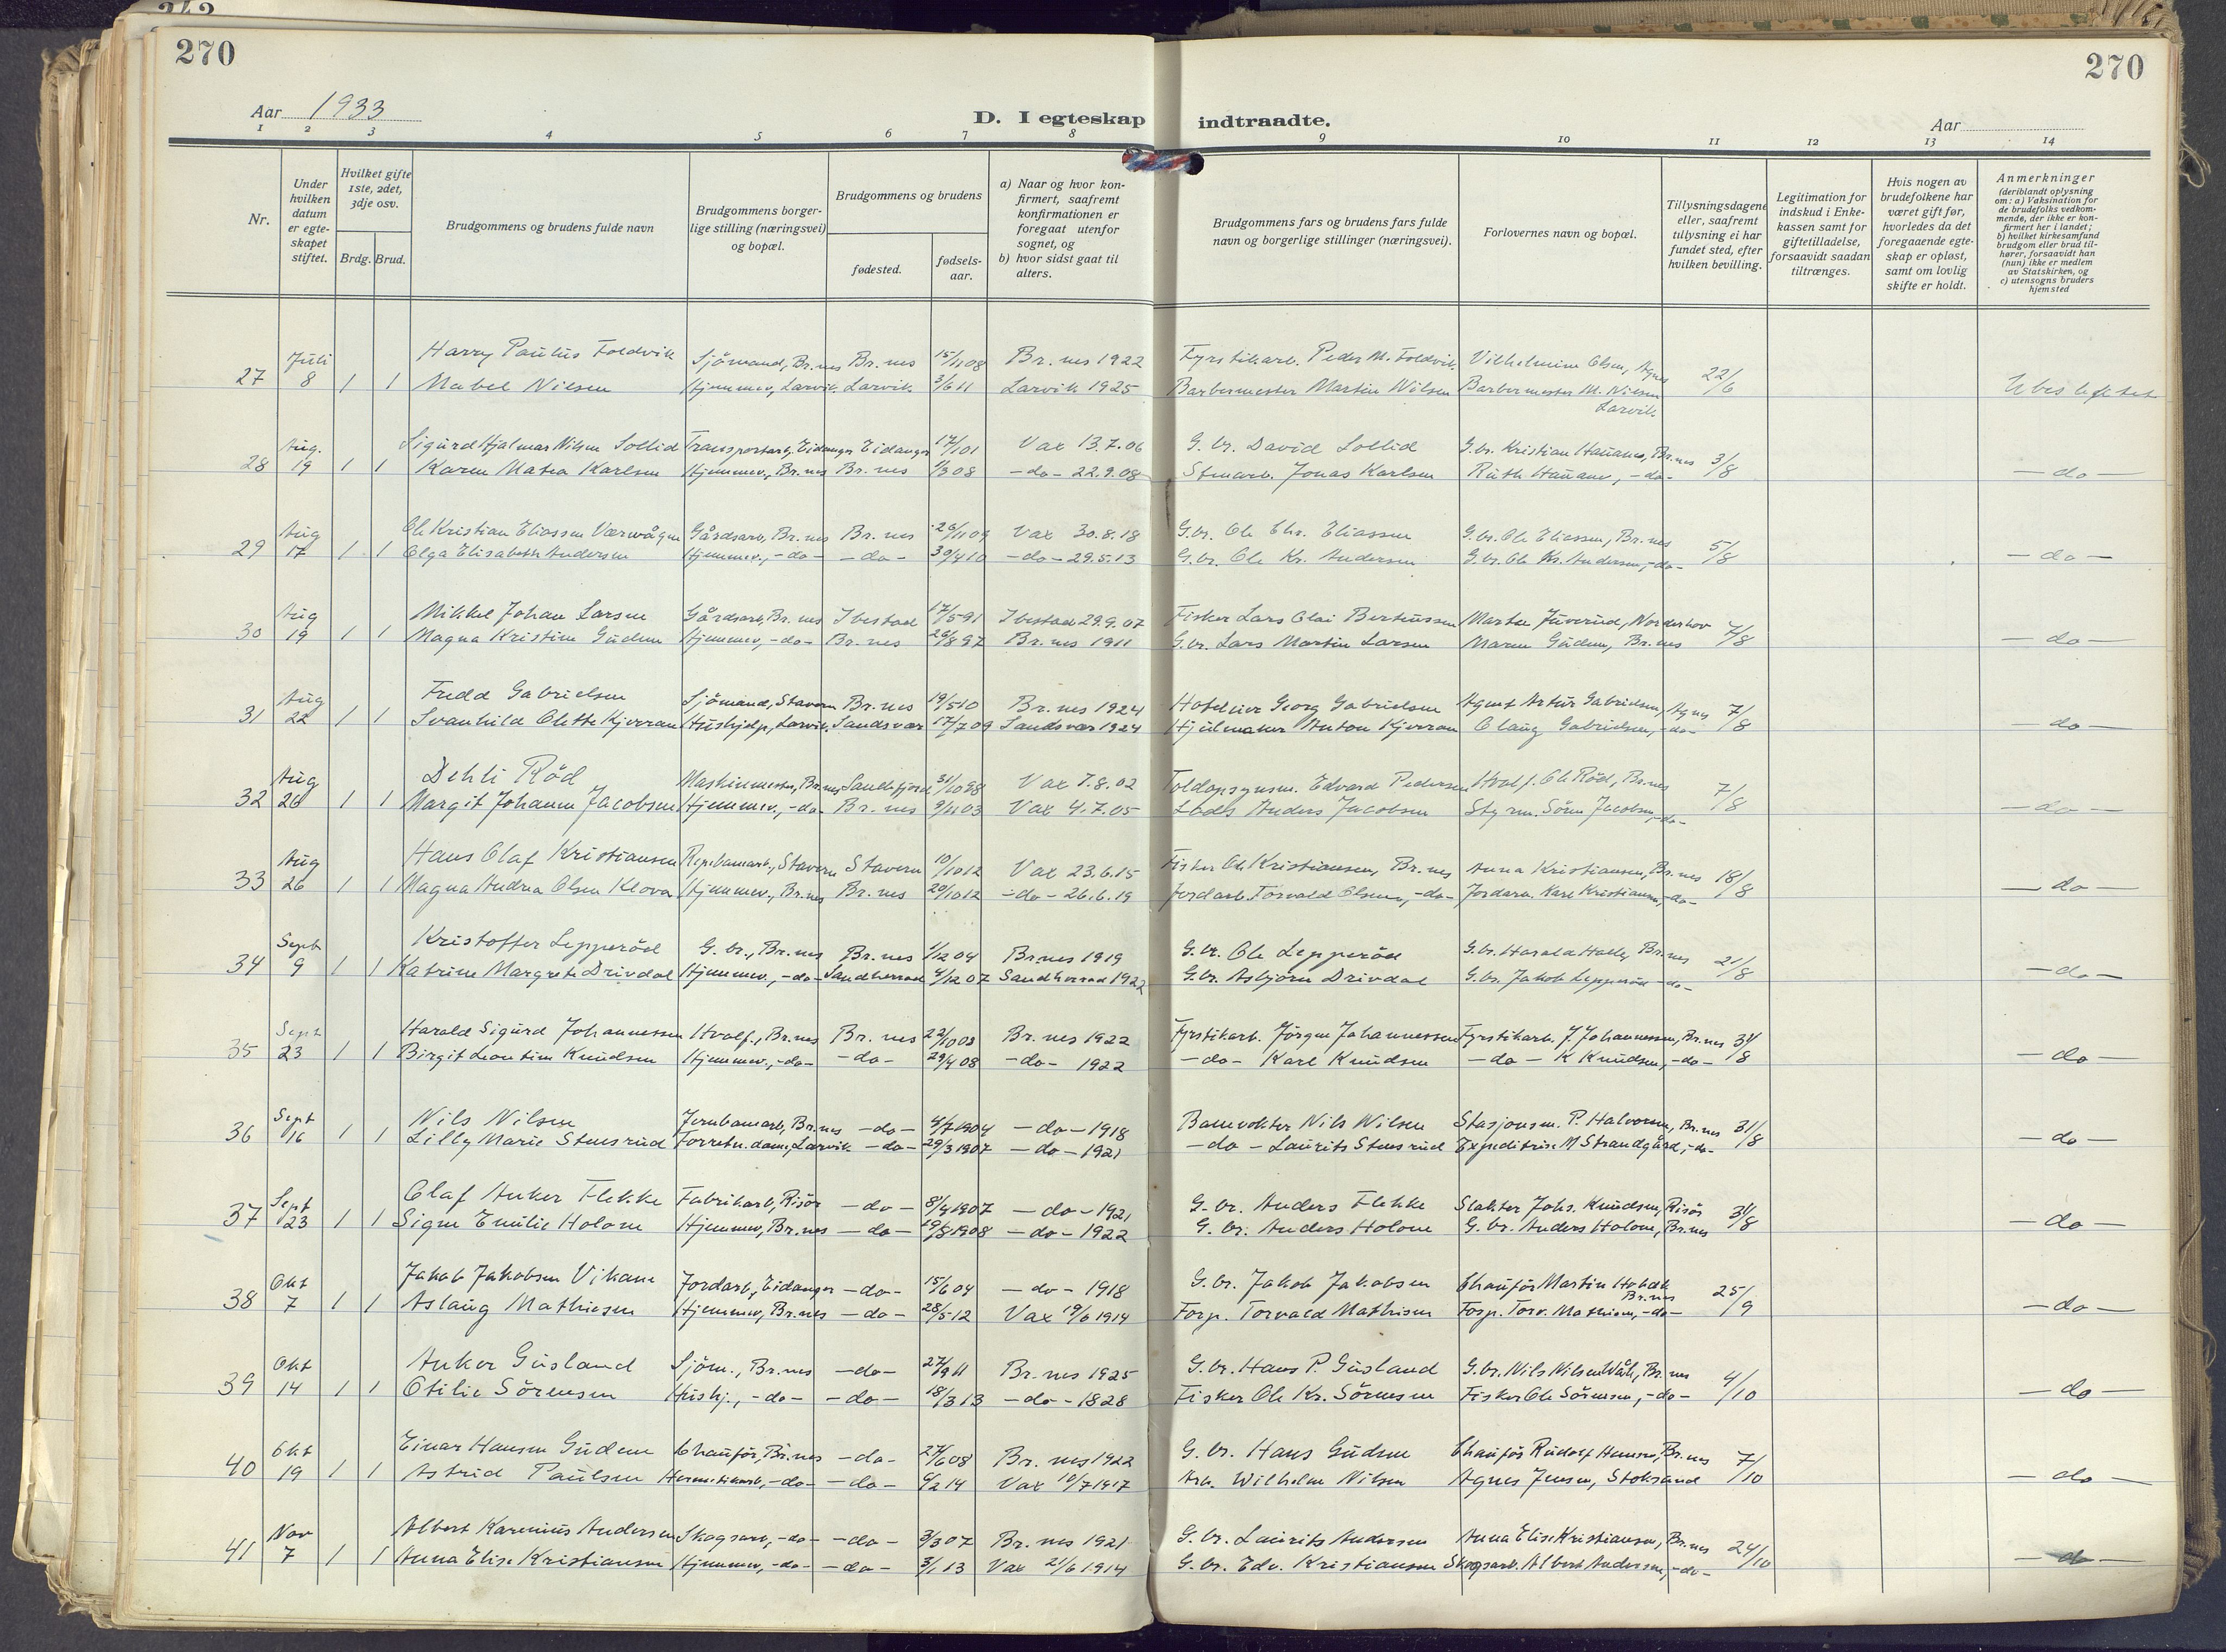 270
270
Aar 1933
D. I egteskap indtraadte.
Aar
1 2 3 4 5 6 7 8 9 10 11 12 13 14
Nr.
Under hvilken datum er egteskapet stiftet.
Hvilket gifte 1ste, 2det, 3dje osv.
Brdg. Brud.
Brudgommens og brudens fulde navn
Brudgommens borgerlige stilling (næringsvei) og bopæl.
Brudgommens og brudens
fødested.
fødselsaar.
a) Naar og hvor konfirmert, saafremt konfirmationen er foregaat utenfor sognet, og
b) hvor sidst gaat til alters.
Brudgommens fars og brudens fars fulde navn og borgerlige stillinger (næringsvei).
Forlovernes navn og bopæl.
Tillysningsdagene eller, saafremt tillysning ei har fundet sted, efter hvilken bevilling.
Legitimation for indskud i Enkekassen samt for giftetilladelse, forsaavidt saadan tiltrænges.
Hvis nogen av brudefolkene har været gift før, hvorledes da det foregaaende egteskap er opløst, samt om lovlig skifte er holdt.
Anmerkninger
(deriblandt oplysning om: a) Vaksination for de brudefolks vedkommende, der ikke er konfirmert her i landet;
b) hvilket kirkesamfund brudgom eller brud tilhører, forsaavidt han (hun) ikke er medlem av Statskirken, og
c) utensogns bruders hjemsted
Juli Harry Paulus Foldvik Sjömand, Br.nes Br. nes 15/11 08 Br. nes 1922 Fyrstikarb. Peder M. Foldvik Vilhelmine Olsen, Agnes 22/6
27 8 1 1 Mabel Nilsen Hjemmev, Larvik Larvik 3/6 11 Larvik 1925 Barbermester Martin Nilsen Barbermester M. Nilsen Larvik
Aug. Sigurd Hjalmar Nilsen Sollid Transportarb, Eidanger Eidanger 17/1 01 Vax 13.7.06 G. br. David Sollid G. br. Kristian Hauane, Br.nes 3/8
28 19 1 1 Karen Matea Karlsen Hjemmev., Br.nes Br. nes 1/3 08 -do- 22.9.08 Stenarb. Jonas Karlsen Ruth Hauane, -do- -do-
Aug Ole Kristian Eliassen Værvågen Gårdsarb, Br. nes Br. nes 26/11 09 Vax 30.8.18 G. br. Ole Chr. Eliassen G. br. Ole Eliassen, Br.nes 5/8
29 17 1 1 Olga Elisabeth Andersen Hjemmev., -do- -do- 30/4 10 -do- 29.5.13 G. br. Ole Kr. Andersen G. br. Ole Kr. Andersen, -do- -do-
Aug Mikkel Johan Larsen Gårdsarb, Br. nes Ibestad 17/5 91 Ibestad 29.9.07 Fisker Lars Olai Berthussen Marten Juverud, Norderhov 7/8
30 19 1 1 Magna Kristine Gudem Hjemmev, -do- Br. nes 26/8 97 Br. nes 1911 G. br. Lars Martin Larsen Maren Gudem, Br. nes -do-
Aug Fredd Gabrielsen Sjömand, Stavern Br. nes 19/5 10 Br. nes 1924 Hoteleier Georg Gabrielsen Agent Artur Gabrielsen, Agnes 7/8
31 22 1 1 Svanhild Olette Kjerran Hushjelp, Larvik Sandsvær 17/7 09 Sandsvær 1924 Hjulmaker Anton Kjerran Olaug Gabrielsen, -do- -do-
Aug Dehli Röd Maskinmester, Br.nes Sandefjord 31/10 98 Vax 7.8.02 Toldopsynsm. Edvard Pedersen Hvalf. Ole Röd, Br.nes 7/8
32 26 1 1 Margit Johanne Jacobsen Hjemmev., -do- Br. nes 9/11 03 Vax 4.7.05 Lods Anders Jacobsen Styrm. Sören Jacobsen, -do- -do-
Aug Hans Olaf Kristiansen Stavern Stavern 10/10 12 Vax 23.6.15 Fisker Ole Kristiansen, Br. nes Anna Kristiansen, Br. nes 18/8
33 26 1 1 Magna Andrea Olsen Klova Hjemmev., Br.nes Br. nes 20/10 12 -do- 26.6.19 Jordarb. Torvald Olsen, -do- Jordarb. Karl Kristiansen, -do- -do-
Sept Kristoffer Lepperöd G. br., Br. nes Br. nes 1/12 04 Br.nes 1919 G. br. Ole Lepperöd G. br. Harald Halle, Br. nes 21/8
34 9 1 1 Katrine Margrete Drivdal Hjemmev., -do- Sandherred 4/12 07 Sandherred 1922 G. br. Asbjörn Drivdal G. br. Jakob Lepperöd -do- -do-
Sept Harald Sigurd Johannessen Hvalf., Br. nes Br. nes 22/10 08 Br. nes 1922 Fyrstikarb. Jörgen Johannessen Fyrstikarb. J. Johannessen, Br. nes 31/8
35 23 1 1 Birgit Leontine Knudsen Hjemmev., -do- -do- 29/4 08 -do- 1922 -do- Karl Knudsen -do- K Knudsen, -do- -do-
Sept Nils Nilsen Jernbanearb, Br. nes -do- 4/7 1904 -do- 1918 Banevokter Nils Nilsen Stasjonsm. P. Halvorsen, Br. nes 31/8
36 16 1 1 Lilly Marie Stensrud Forretn. dame, Larvik -do- 29/3 1907 -do- 1921 -do- Laurits Stensrud Expeditrise M Strandgård, -do- -do-
Sept Olaf Anker Flekke Fabrikarb, Risör -do- 8/4 1907 -do- 1921 G. br. Anders Flekke Slakter Johs. Knudsen, Risör 31/8
37 23 1 1 Signe Emilie Holane Hjemmev, Br. nes -do- 19/8 1908 -do- 1922 G. br. Anders Holone G. br. Anders Holone, Br.nes -do-
Okt Jakob Jakobsen Vikane Jordarb, Eidanger -do- 15/6 04 -do- 1918 G. br. Jakob Jakobsen Chauför Martin Holtak Br.nes 25/9
38 7 1 1 Aslaug Mathisen Hjemmev, Br.nes -do- 28/5 12 Vax 19/6 1914 Forp. Torvald Mathisen Forp. Torv. Mathisen, -do- -do-
Okt Anker Gusland Sjöm., Br. nes -do- 27/9 11 Br. nes 1925 G. br. Hans P. Gusland G. br. Nils Nilsen Br. nes 4/10
39 14 1 1 Otilie Sörensen Hushj., -do- -do- 18/3 13 -do- 1828 Fisker Ole Kr. Sörensen Fisker Ole Sörensen, -do- -do-
Okt Einar Hansen Gudem Chauför, Br.nes -do- 27/6 08 Br. nes 1922 G. br. Hans Gudem Chauför Rudolf Hansen, Br. nes 7/10
40 19 1 1 Astrid Paulsen Hermetikarb, -do- -do- 9/2 14 Vax 10/7 1917 Arb. Wilhelm Nilsen Agnes Jensen, Stoksund -do-
Nov Albert Karenius Andersen Skogsarb, -do- -do- 3/3 07 Br. nes 1921 G. br. Laurits Andersen Anna Elise Kristiansen, Br. nes 24/10
41 7 1 1 Anna Elise Kristiansen Hjemmev, -do- -do- 3/1 13 Vax 21/6 1914 G. br. Edv. Kristiansen Skogsarb. Albert Andersen, -do- -do-